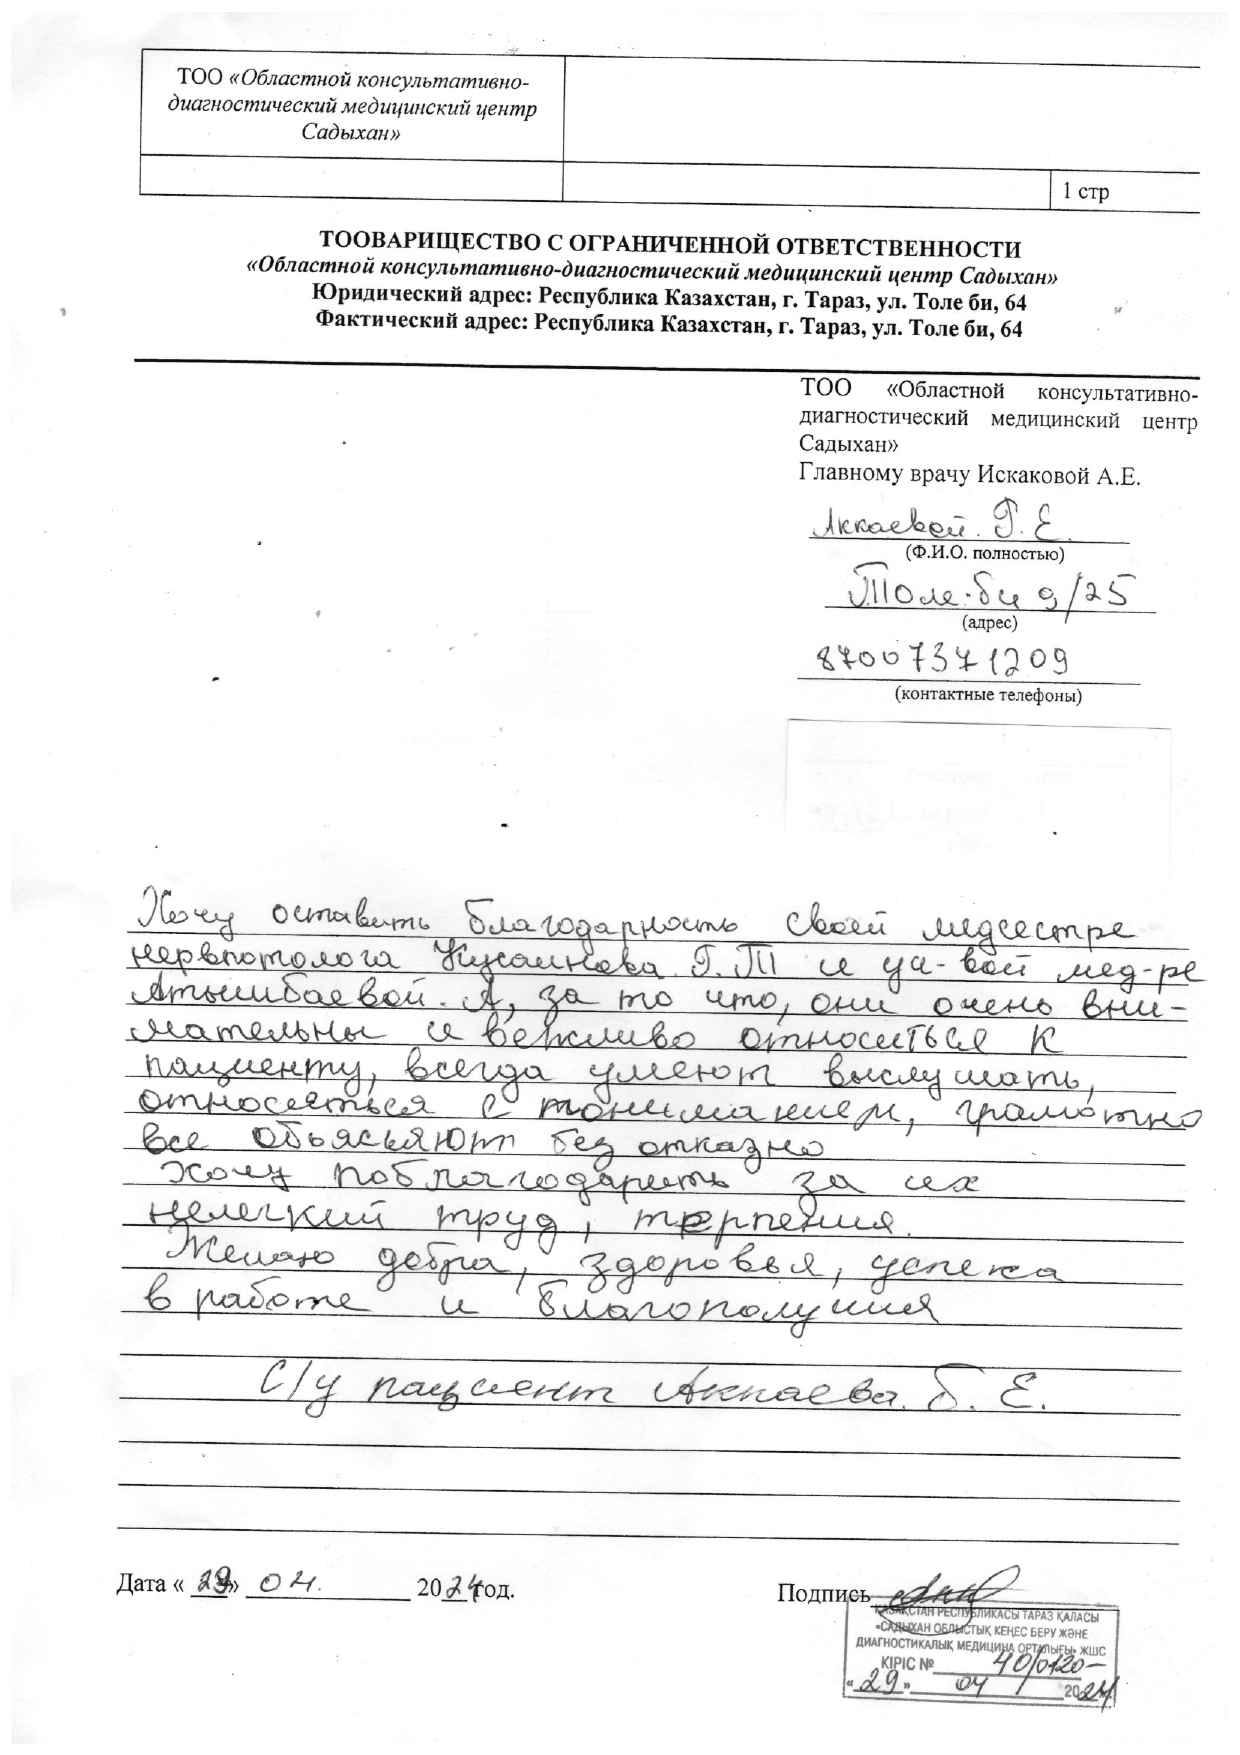 ТОО «Областной консультативно-
диагностический медицинский центр
Садыхан»
1 стр
ТООВАРИЩЕСТВО С ОГРАНИЧЕННОЙ ОТВЕТСТВЕННОСТИ
«Областной консультативно-диагностический медицинский центр Садыхан»
Юридический адрес: Республика Казахстан, г. Тараз, ул. Толе би, 64
Фактический адрес: Республика Казахстан, г. Тараз, ул. Толе би, 64
ТОО «Областной консультативно-
диагностический медицинский центр
Садыхан»
Главному врачу Искаковой А.Е.
Аккаевой. Г. Е.
(Ф.И.О. полностью)
Толе-би 9/25
(адрес)
87007371209
(контактные телефоны)
Хочу оставить благодарность своей медсестре
нервпотолога Кусаинова Г.Т и уч-вой мед-ре
Атышбаевой. А, за то что, они очень вни-
мательны и вежливо относиться к
пациенту, всегда умеют выслушать,
относяться с пониманием, грамотно
все объясьяют без отказно
Хочу поблагодарить за их
нелегкий труд, терпения.
Желаю добра, здоровья, успеха
в работе и благополучия
С/у пациент Аккаева. Б. Е.
Дата « 29» 04. 2024 год.
Подпись
ҚАЗАҚСТАН РЕСПУБЛИКАСЫ ТАРАЗ ҚАЛАСЫ
«САДЫХАН ОБЛЫСТЫҚ КЕҢЕС БЕРУ ЖӘНЕ
ДИАГНОСТИКАЛЫҚ МЕДИЦИНА ОРТАЛЫҒЫ» ЖШС
КІРІС № 40/0120-
«29» 04 2024